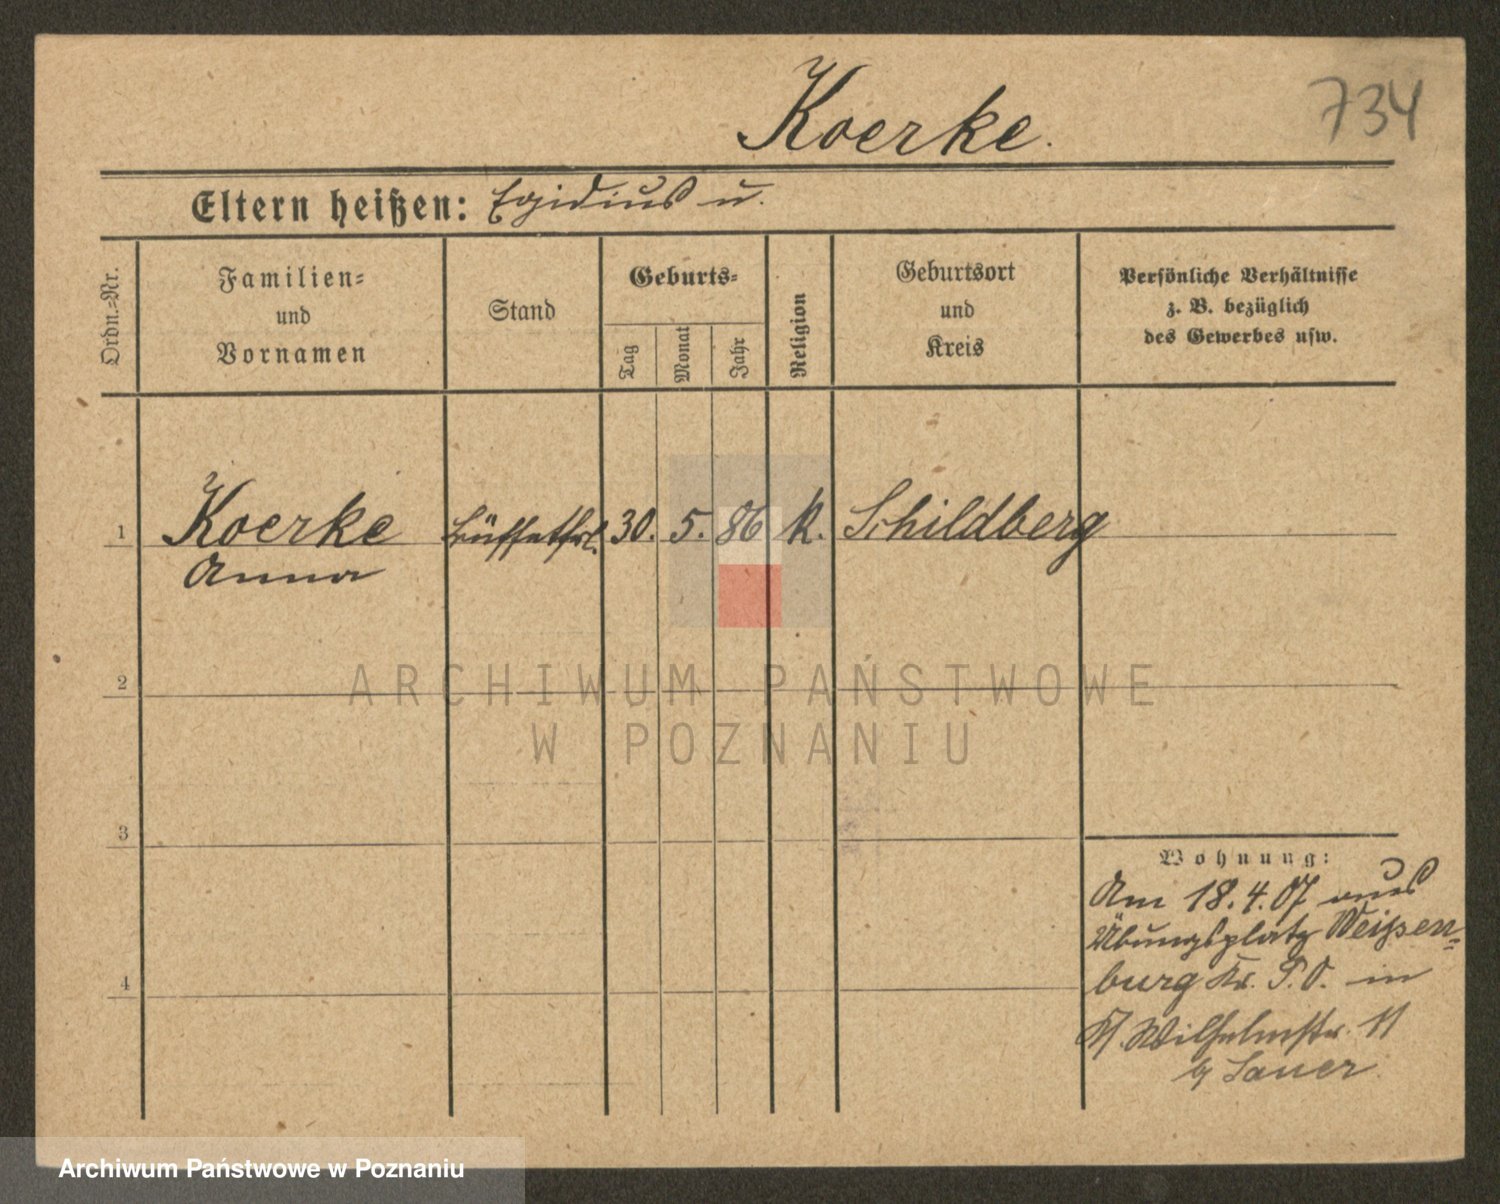 Koerke.
734
Eltern heißen: Egidius u.
Ordn.-Nr.
Familien-
und
Vornamen
Stand
Geburts-
Tag
Monat
Jahr
Religion
Geburtsort
und
Kreis
Persönliche Verhältnisse
z. B. bezüglich
des Gewerbes usw.
1 Koerke Büffetfrl. 30. 5. 86 k. Schildberg
Anna
2
3
4
Wohnung:
Am 18.4.07 aus
Übungsplatz Weißen-
burg Kr. P. O. in
Wilhelmstr. 11
b/ Lauer.
ARCHIWUM PAŃSTWOWE
W POZNANIU
Archiwum Państwowe w Poznaniu